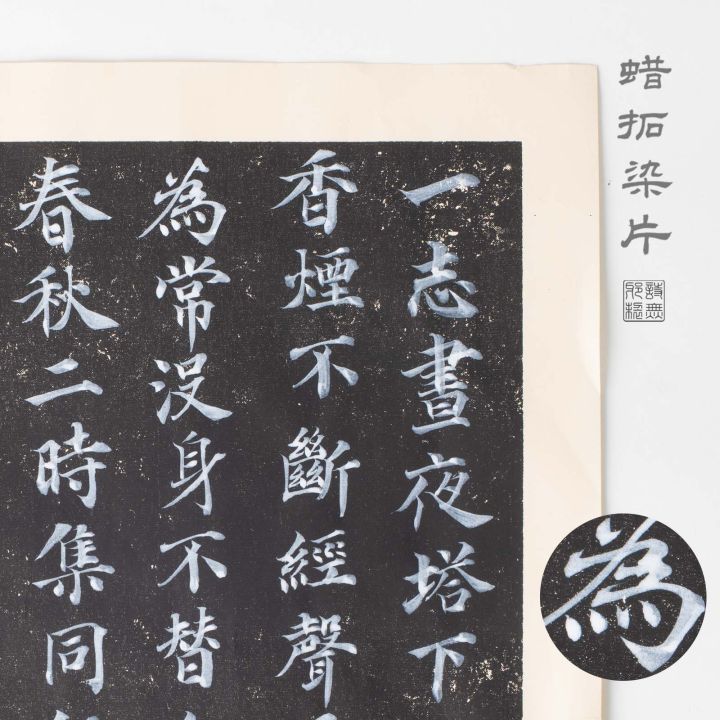 蜡拓染片
詩無
一志晝夜塔下
香煙不斷經聲
為常沒身不替
春秋二時集同
為